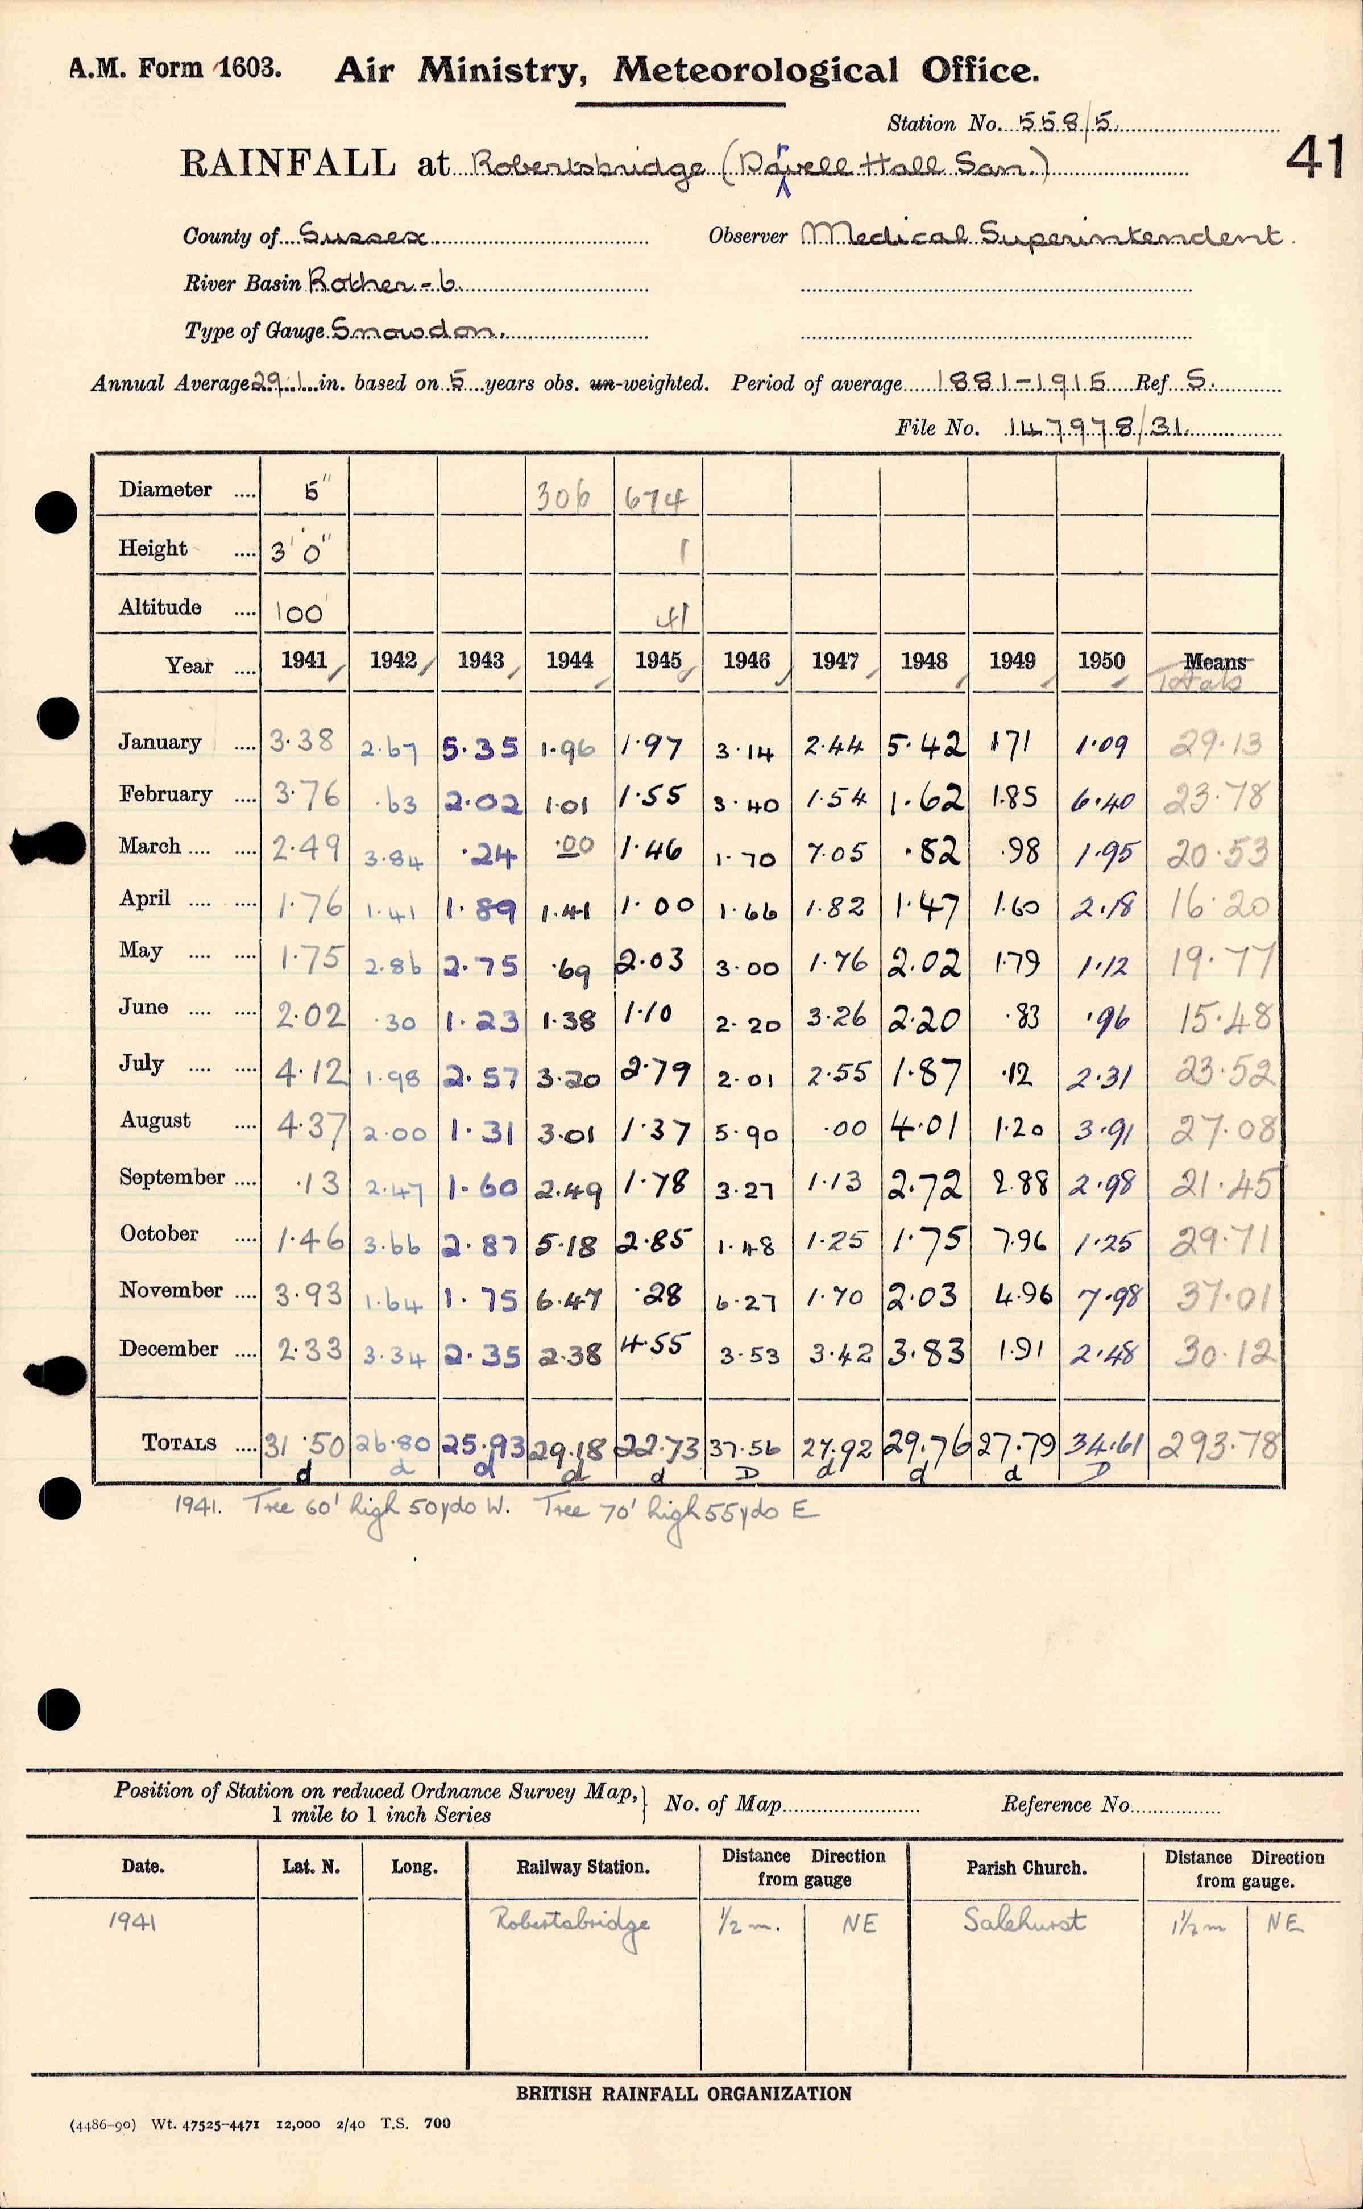 A.M. Form 1603. Air Ministry, Meteorological Office.
Station No. 558/5.
41
RAINFALL at Robertsbridge (Darvell Hall San.)
County of Sussex Observer Medical Superintendent.
River Basin Rother - 6.
Type of Gauge Snowdon.
Annual Average 29.1 in. based on 5 years obs. un-weighted. Period of average 1881-1915 Ref S.
File No. 147978/31.
Diameter .... 5" 306 674
Height .... 3' 0" 1
Altitude .... 100' 41
Year .... 1941 1942 1943 1944 1945 1946 1947 1948 1949 1950 Means
Totals
January .... 3.38 2.67 5.35 1.96 1.97 3.14 2.44 5.42 1.71 1.09 29.13
February .... 3.76 .63 2.02 1.01 1.55 3.40 1.54 1.62 1.85 6.40 23.78
March .... .... 2.49 3.84 .24 .00 1.46 1.70 7.05 .82 .98 1.95 20.53
April .... .... 1.76 1.41 1.89 1.41 1.00 1.66 1.82 1.47 1.60 2.18 16.20
May .... .... 1.75 2.86 2.75 .69 2.03 3.00 1.76 2.02 1.79 1.12 19.77
June .... .... 2.02 .30 1.23 1.38 1.10 2.20 3.26 2.20 .83 .96 15.48
July .... .... 4.12 1.98 2.57 3.20 2.79 2.01 2.55 1.87 .12 2.31 23.52
August .... 4.37 2.00 1.31 3.01 1.37 5.90 .00 4.01 1.20 3.91 27.08
September .... .13 2.47 1.60 2.49 1.78 3.27 1.13 2.72 2.88 2.98 21.45
October .... 1.46 3.66 2.87 5.18 2.85 1.48 1.25 1.75 7.96 1.25 29.71
November .... 3.93 1.64 1.75 6.47 .28 6.27 1.70 2.03 4.96 7.98 37.01
December .... 2.33 3.34 2.35 2.38 4.55 3.53 3.42 3.83 1.91 2.48 30.12
TOTALS .... 31.50 26.80 25.93 29.18 22.73 37.56 27.92 29.76 27.79 34.61 293.78
d d d d d D d d d D
1941. Tree 60' high 50 yds W. Tree 70' high 55 yds E
Position of Station on reduced Ordnance Survey Map, 1 mile to 1 inch Series } No. of Map Reference No.
Date. Lat. N. Long. Railway Station. Distance Direction from gauge Parish Church. Distance Direction from gauge.
1941 Robertsbridge 1/2 m. NE Salehurst 1 1/2 m NE
BRITISH RAINFALL ORGANIZATION
(4486-90) Wt. 47525-4471 12,000 2/40 T.S. 700